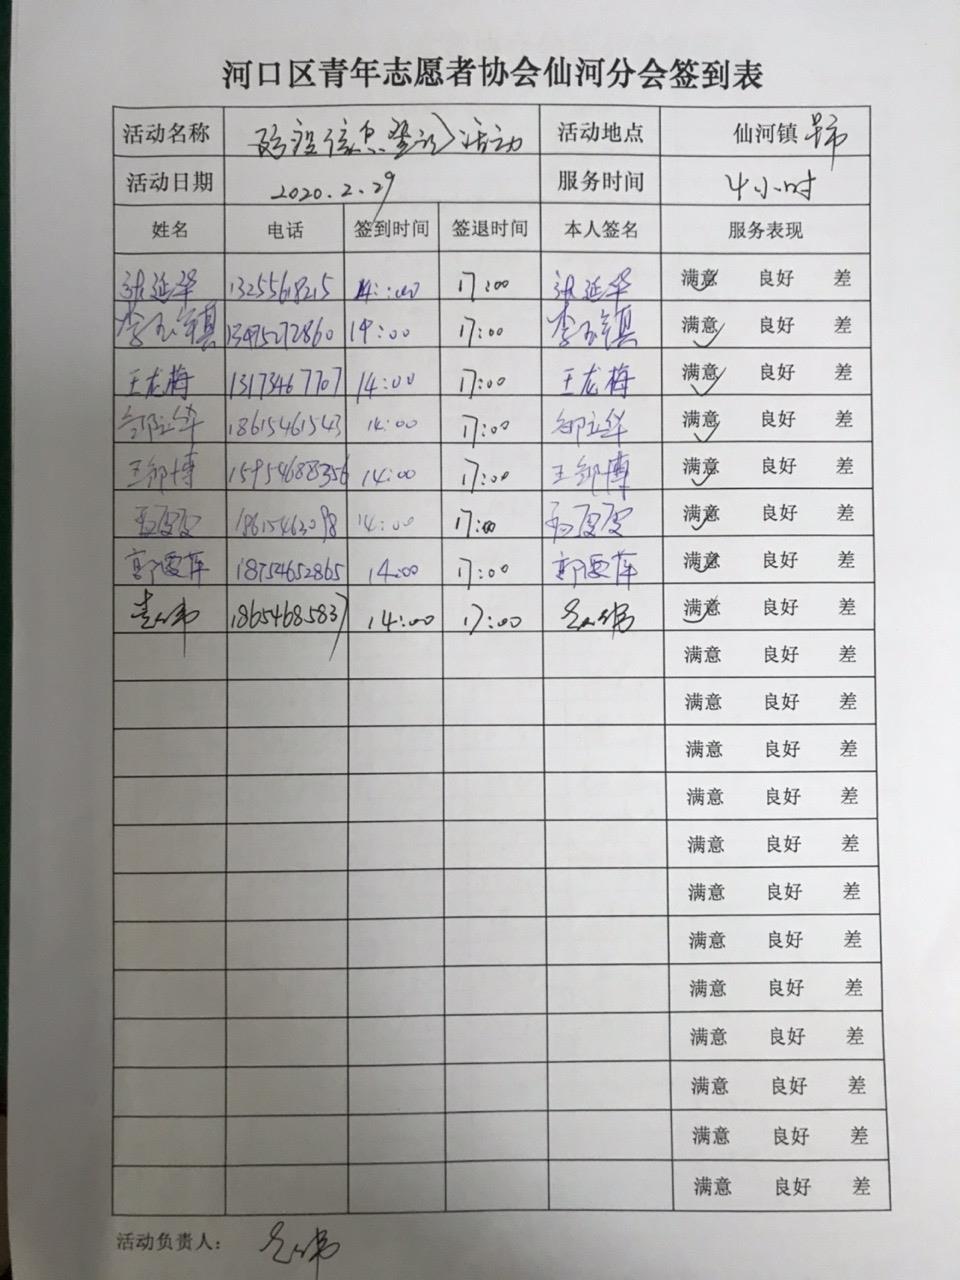 河口区青年志愿者协会仙河分会签到表
活动名称 信息登记活动 活动地点 仙河镇
活动日期 2020.2.29 服务时间 4小时
姓名 电话 签到时间 签退时间 本人签名 服务表现
张延华 13255618215 14:00 17:00 张延华 满意 良好 差
李玉镇 13475272860 14:00 17:00 李玉镇 满意 良好 差
王龙梅 13173467707 14:00 17:00 王龙梅 满意 良好 差
邹立华 18615461543 14:00 17:00 邹立华 满意 良好 差
王邹博 15954688356 14:00 17:00 王邹博 满意 良好 差
14:00 17:00 满意 良好 差
郭要萍 18754652865 14:00 17:00 郭要萍 满意 良好 差
18654685837 14:00 17:00 满意 良好 差
满意 良好 差
满意 良好 差
满意 良好 差
满意 良好 差
满意 良好 差
满意 良好 差
满意 良好 差
满意 良好 差
满意 良好 差
满意 良好 差
满意 良好 差
满意 良好 差
活动负责人: